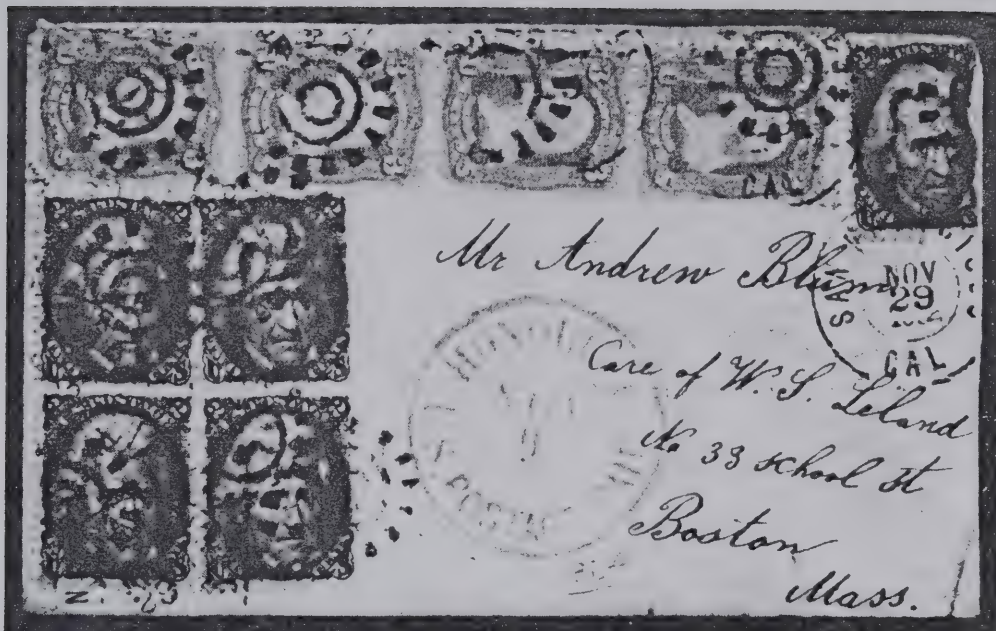 CAL
Mr Andrew Blum
NOV
29
CAL
Care of W. S. Leland
No 33 school St
Boston
Mass.